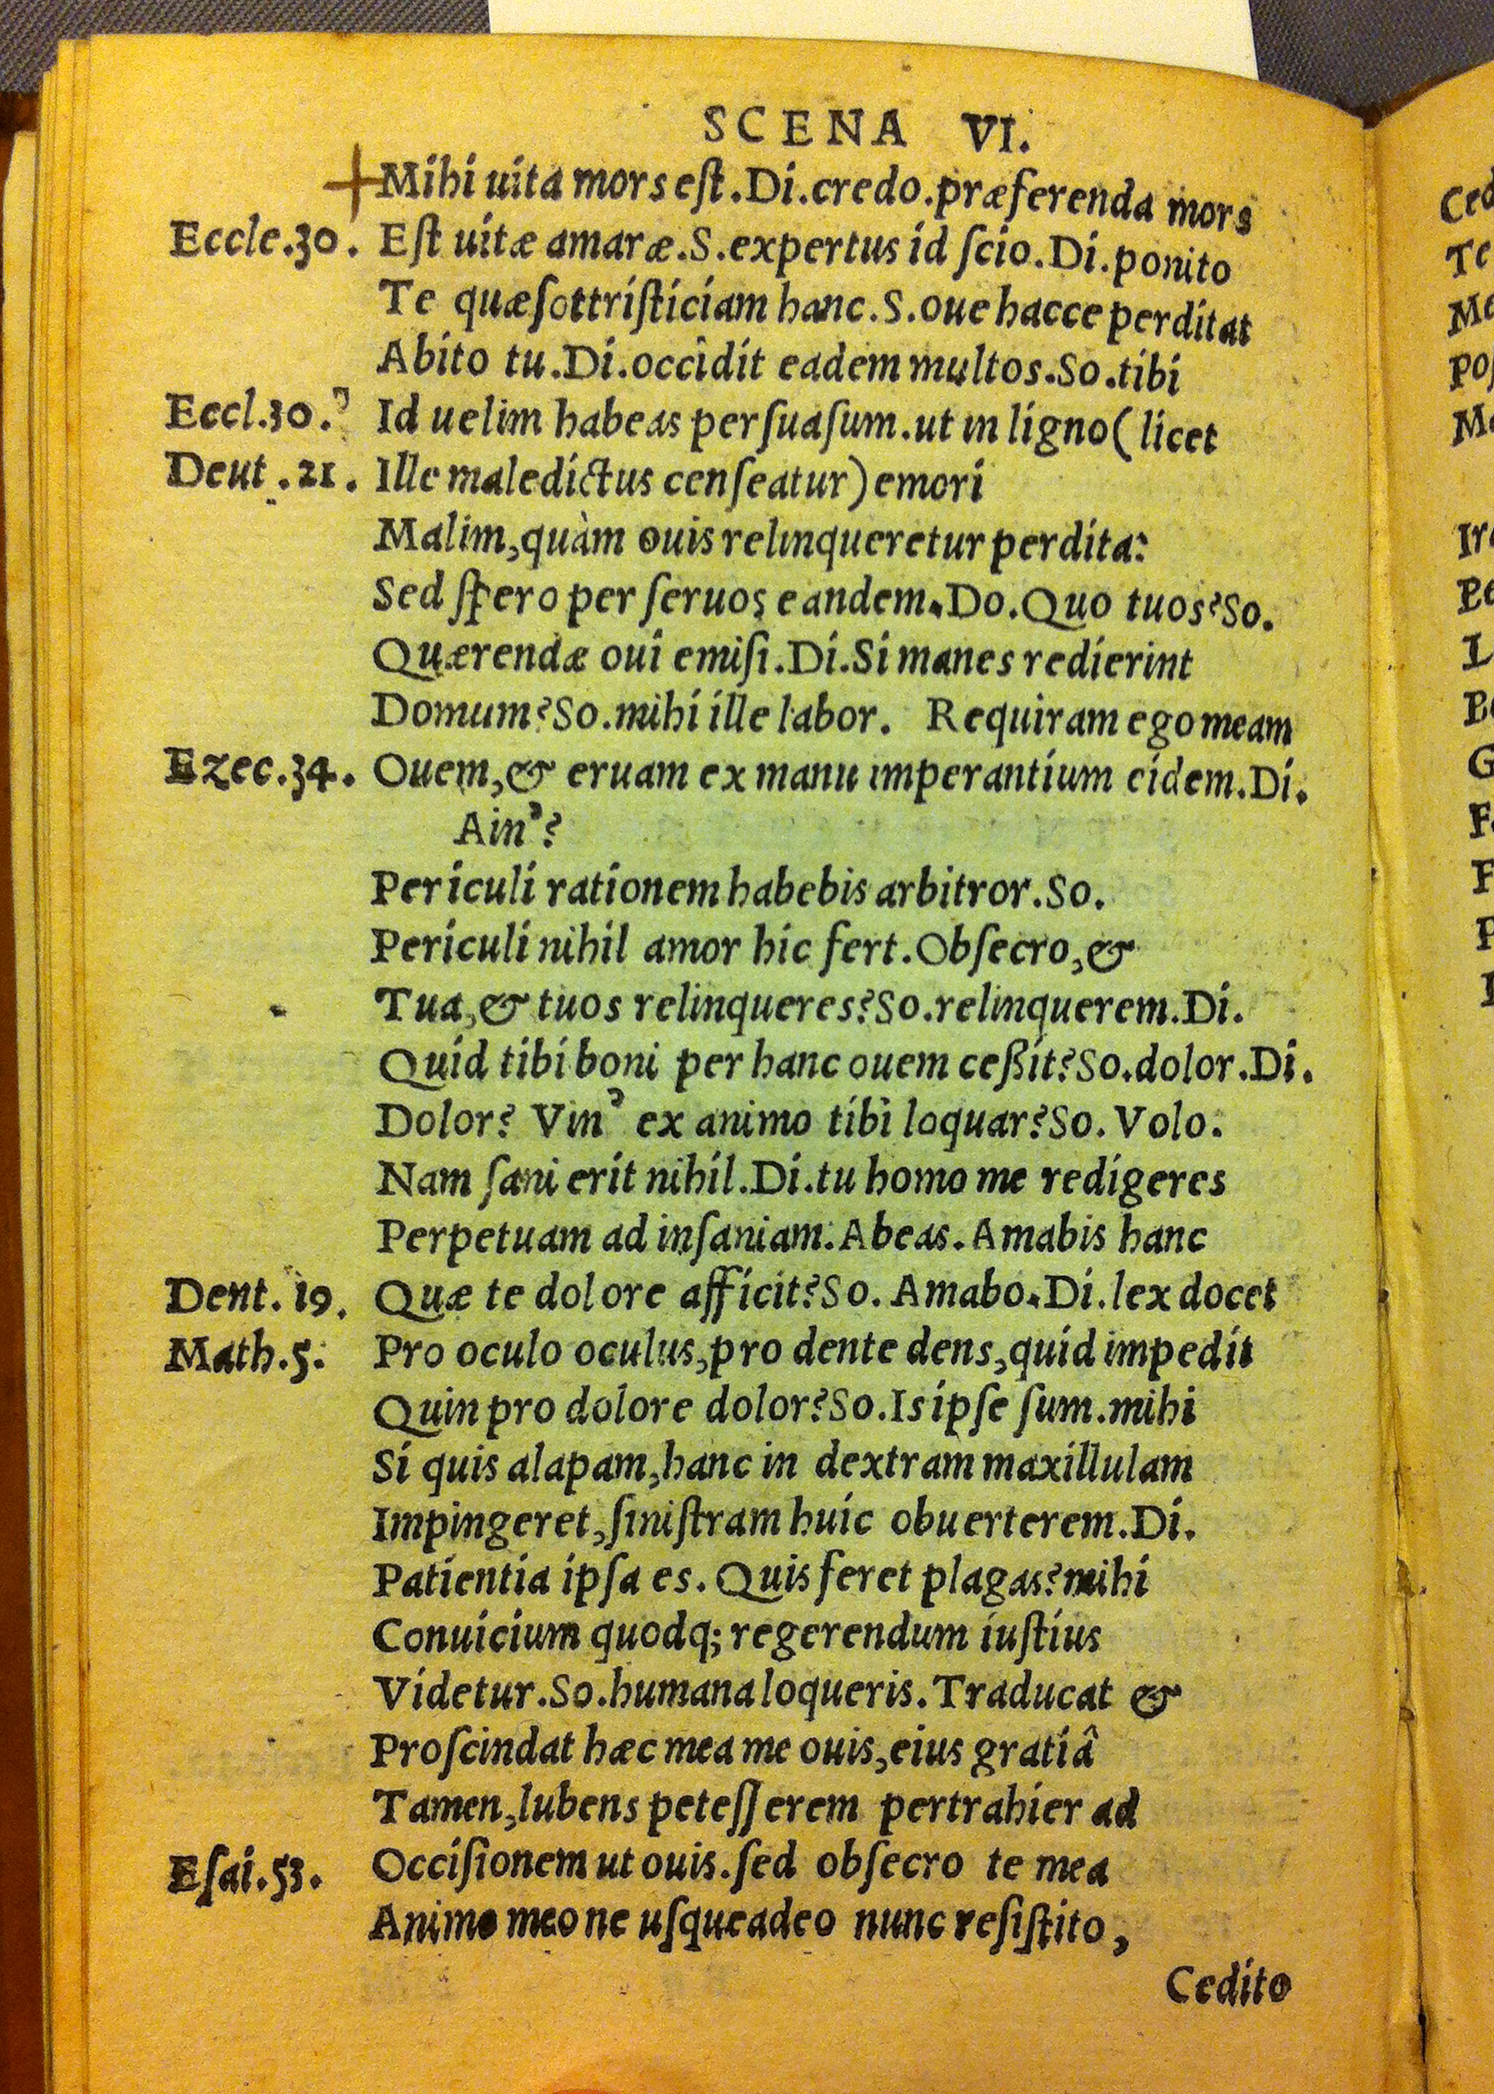 SCENA VI.
Mihi uita mors est.Di.credo.præferenda mors
Eccle.30. Est uitæ amaræ.S.expertus id ſcio.Di.ponito
Te quæſo ttriſticiam hanc.S.oue hacce perditat
Abito tu.Di.occîdit eadem multos.So.tibi
Eccl.30. Id uelim habeas perſuaſum.ut in ligno(licet
Deut.21. Ille maledictus cenſeatur)emori
Malim,quàm ouis relinqueretur perdita:
Sed ſpero per ſeruos eandem.Do.Quo tuos?So.
Quærendæ oui emiſi.Di.Si manes redierint
Domum?So.mihi ille labor. Requiram ego meam
Ezec.34. Ouem,& eruam ex manu imperantium eidem.Di.
Ain'?
Periculi rationem habebis arbitror.So.
Periculi nihil amor hic fert.Obſecro,&
Tua,& tuos relinqueres?So.relinquerem.Di.
Quid tibi boni per hanc ouem ceßit?So.dolor.Di.
Dolor? Vin' ex animo tibi loquar?So.Volo.
Nam ſani erit nihil.Di.tu homo me redigeres
Perpetuam ad inſaniam.Abeas.Amabis hanc
Dent.19. Quæ te dolore afficit?So.Amabo.Di.lex docet
Math.5. Pro oculo oculus,pro dente dens,quid impedit
Quin pro dolore dolor?So.Is ipſe ſum.mihi
Si quis alapam,hanc in dextram maxillulam
Impingeret,ſiniſtram huic obuerterem.Di.
Patientia ipſa es.Quis feret plagas?mihi
Conuicium quodq; regerendum iuſtius
Videtur.So.humana loqueris.Traducat &
Proſcindat hæc mea me ouis,eius gratiâ
Tamen,lubens peteſſerem pertrahier ad
Eſai.53. Occiſionem ut ouis.ſed obſecro te mea
Animo meo ne uſqueadeo nunc reſiſtito,
Cedito